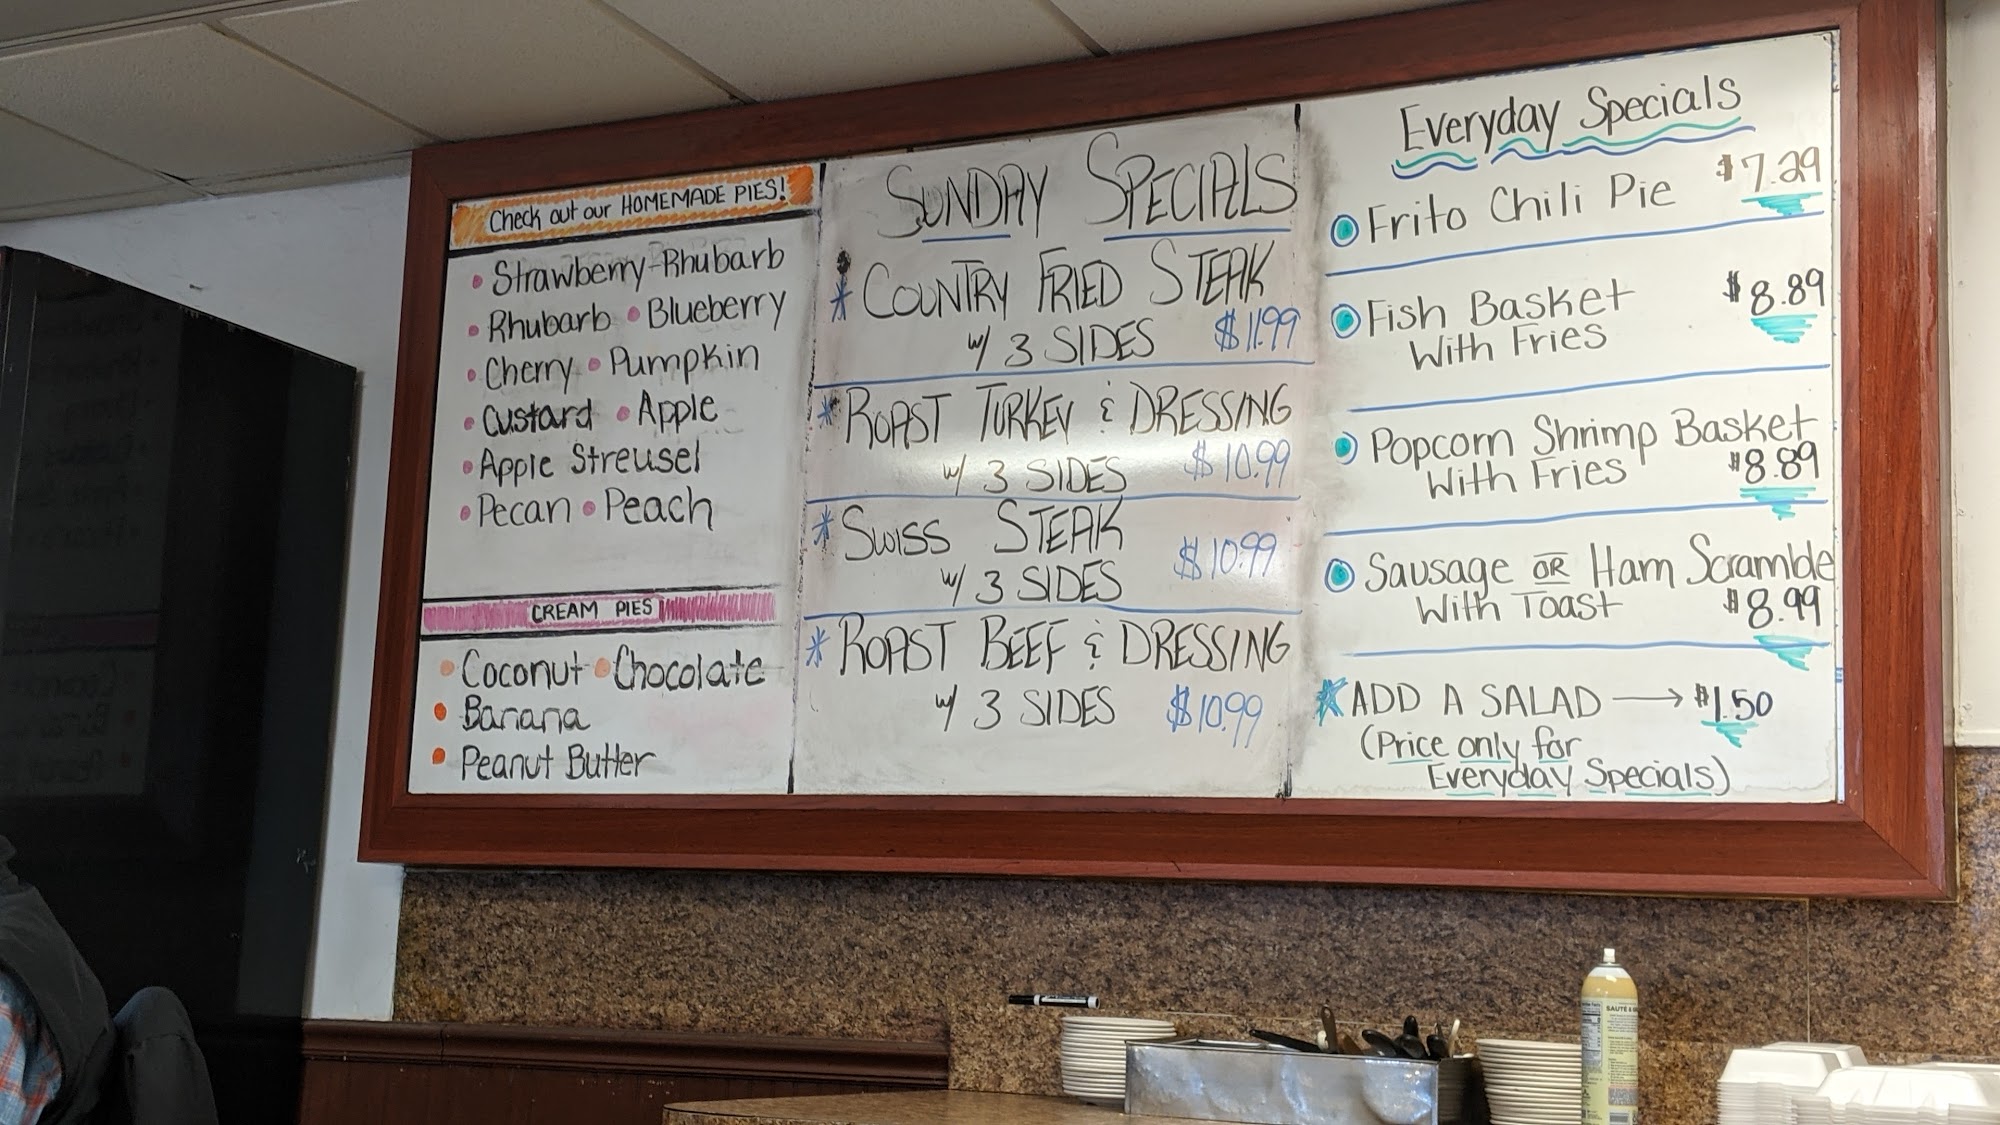 Check out our HOMEMADE PIES!
• Strawberry-Rhubarb
• Rhubarb • Blueberry
• Cherry • Pumpkin
• Custard • Apple
• Apple Streusel
• Pecan • Peach
CREAM PIES
• Coconut • Chocolate
• Banana
• Peanut Butter
SUNDAY SPECIALS
* COUNTRY FRIED STEAK
w/ 3 SIDES $11.99
* ROAST TURKEY & DRESSING
w/ 3 SIDES $10.99
* SWISS STEAK
w/ 3 SIDES $10.99
* ROAST BEEF & DRESSING
w/ 3 SIDES $10.99
Everyday Specials
• Frito Chili Pie $7.29
• Fish Basket $8.89
With Fries
• Popcorn Shrimp Basket
With Fries $8.89
• Sausage OR Ham Scramble
With Toast $8.99
* ADD A SALAD → $1.50
(Price only for
Everyday Specials)
SAUTÉ &